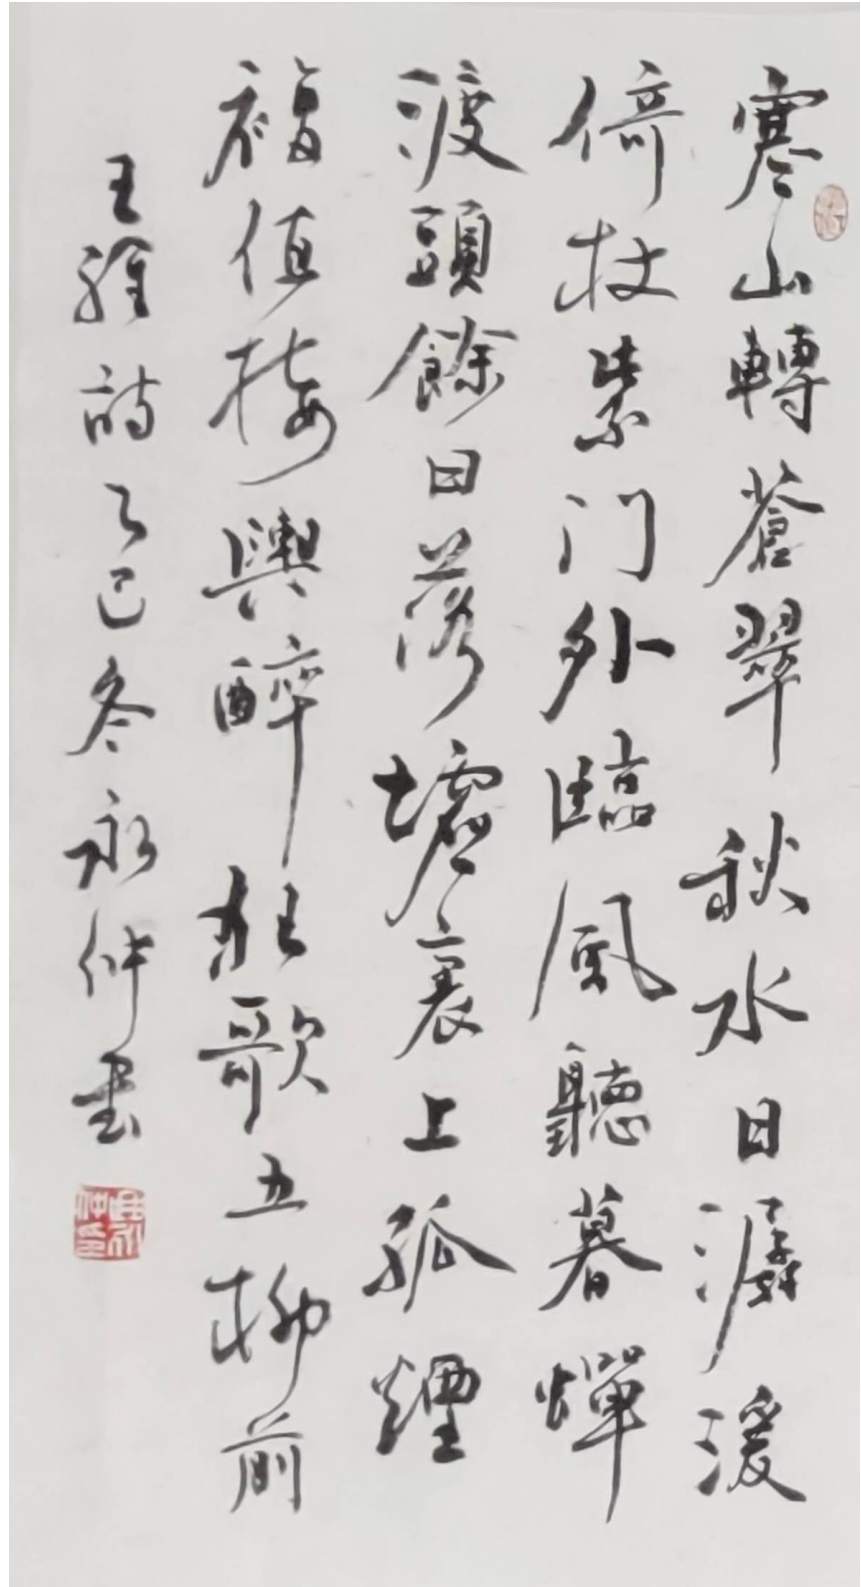 寒山轉蒼翠秋水日潺湲
倚杖柴门外臨風聽暮蟬
渡頭餘日落墟裏上孤煙
複值接輿醉狂歌五柳前
王維詩乙巳冬永仲書